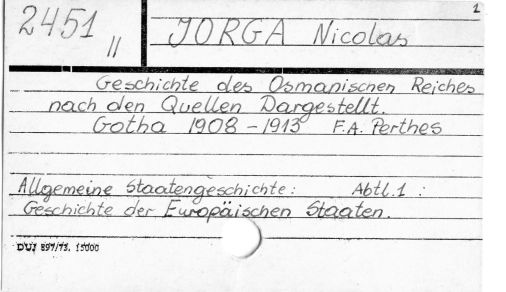 1
2451 II JORGA Nicolas
Geschichte des Osmanischen Reiches
nach den Quellen Dargestellt.
Gotha 1908-1913 F.A. Perthes
Allgemeine Staatengeschichte: Abtl.1 :
Geschichte der Europäischen Staaten.
DUJ 897/73. 15000